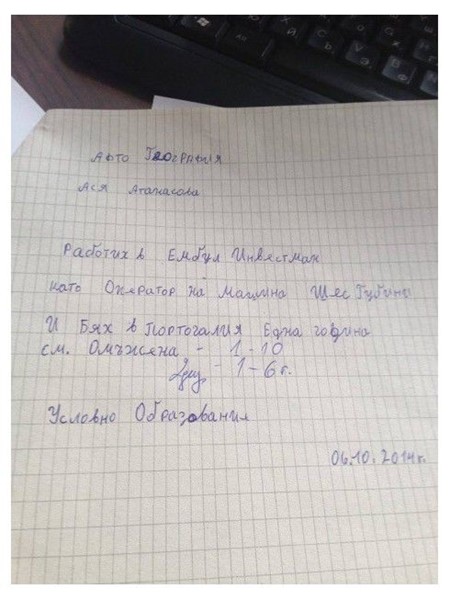 Авто Геогрвфия
Ася Атанасова
Работих в Ембул Инвестман
като Оператор на Машина Шес Гудини
И Бях в Портогалия Една година
см. Омъжена - 1-10
2дец - 1-6 г.
Условно Образования
06.10.2014г.